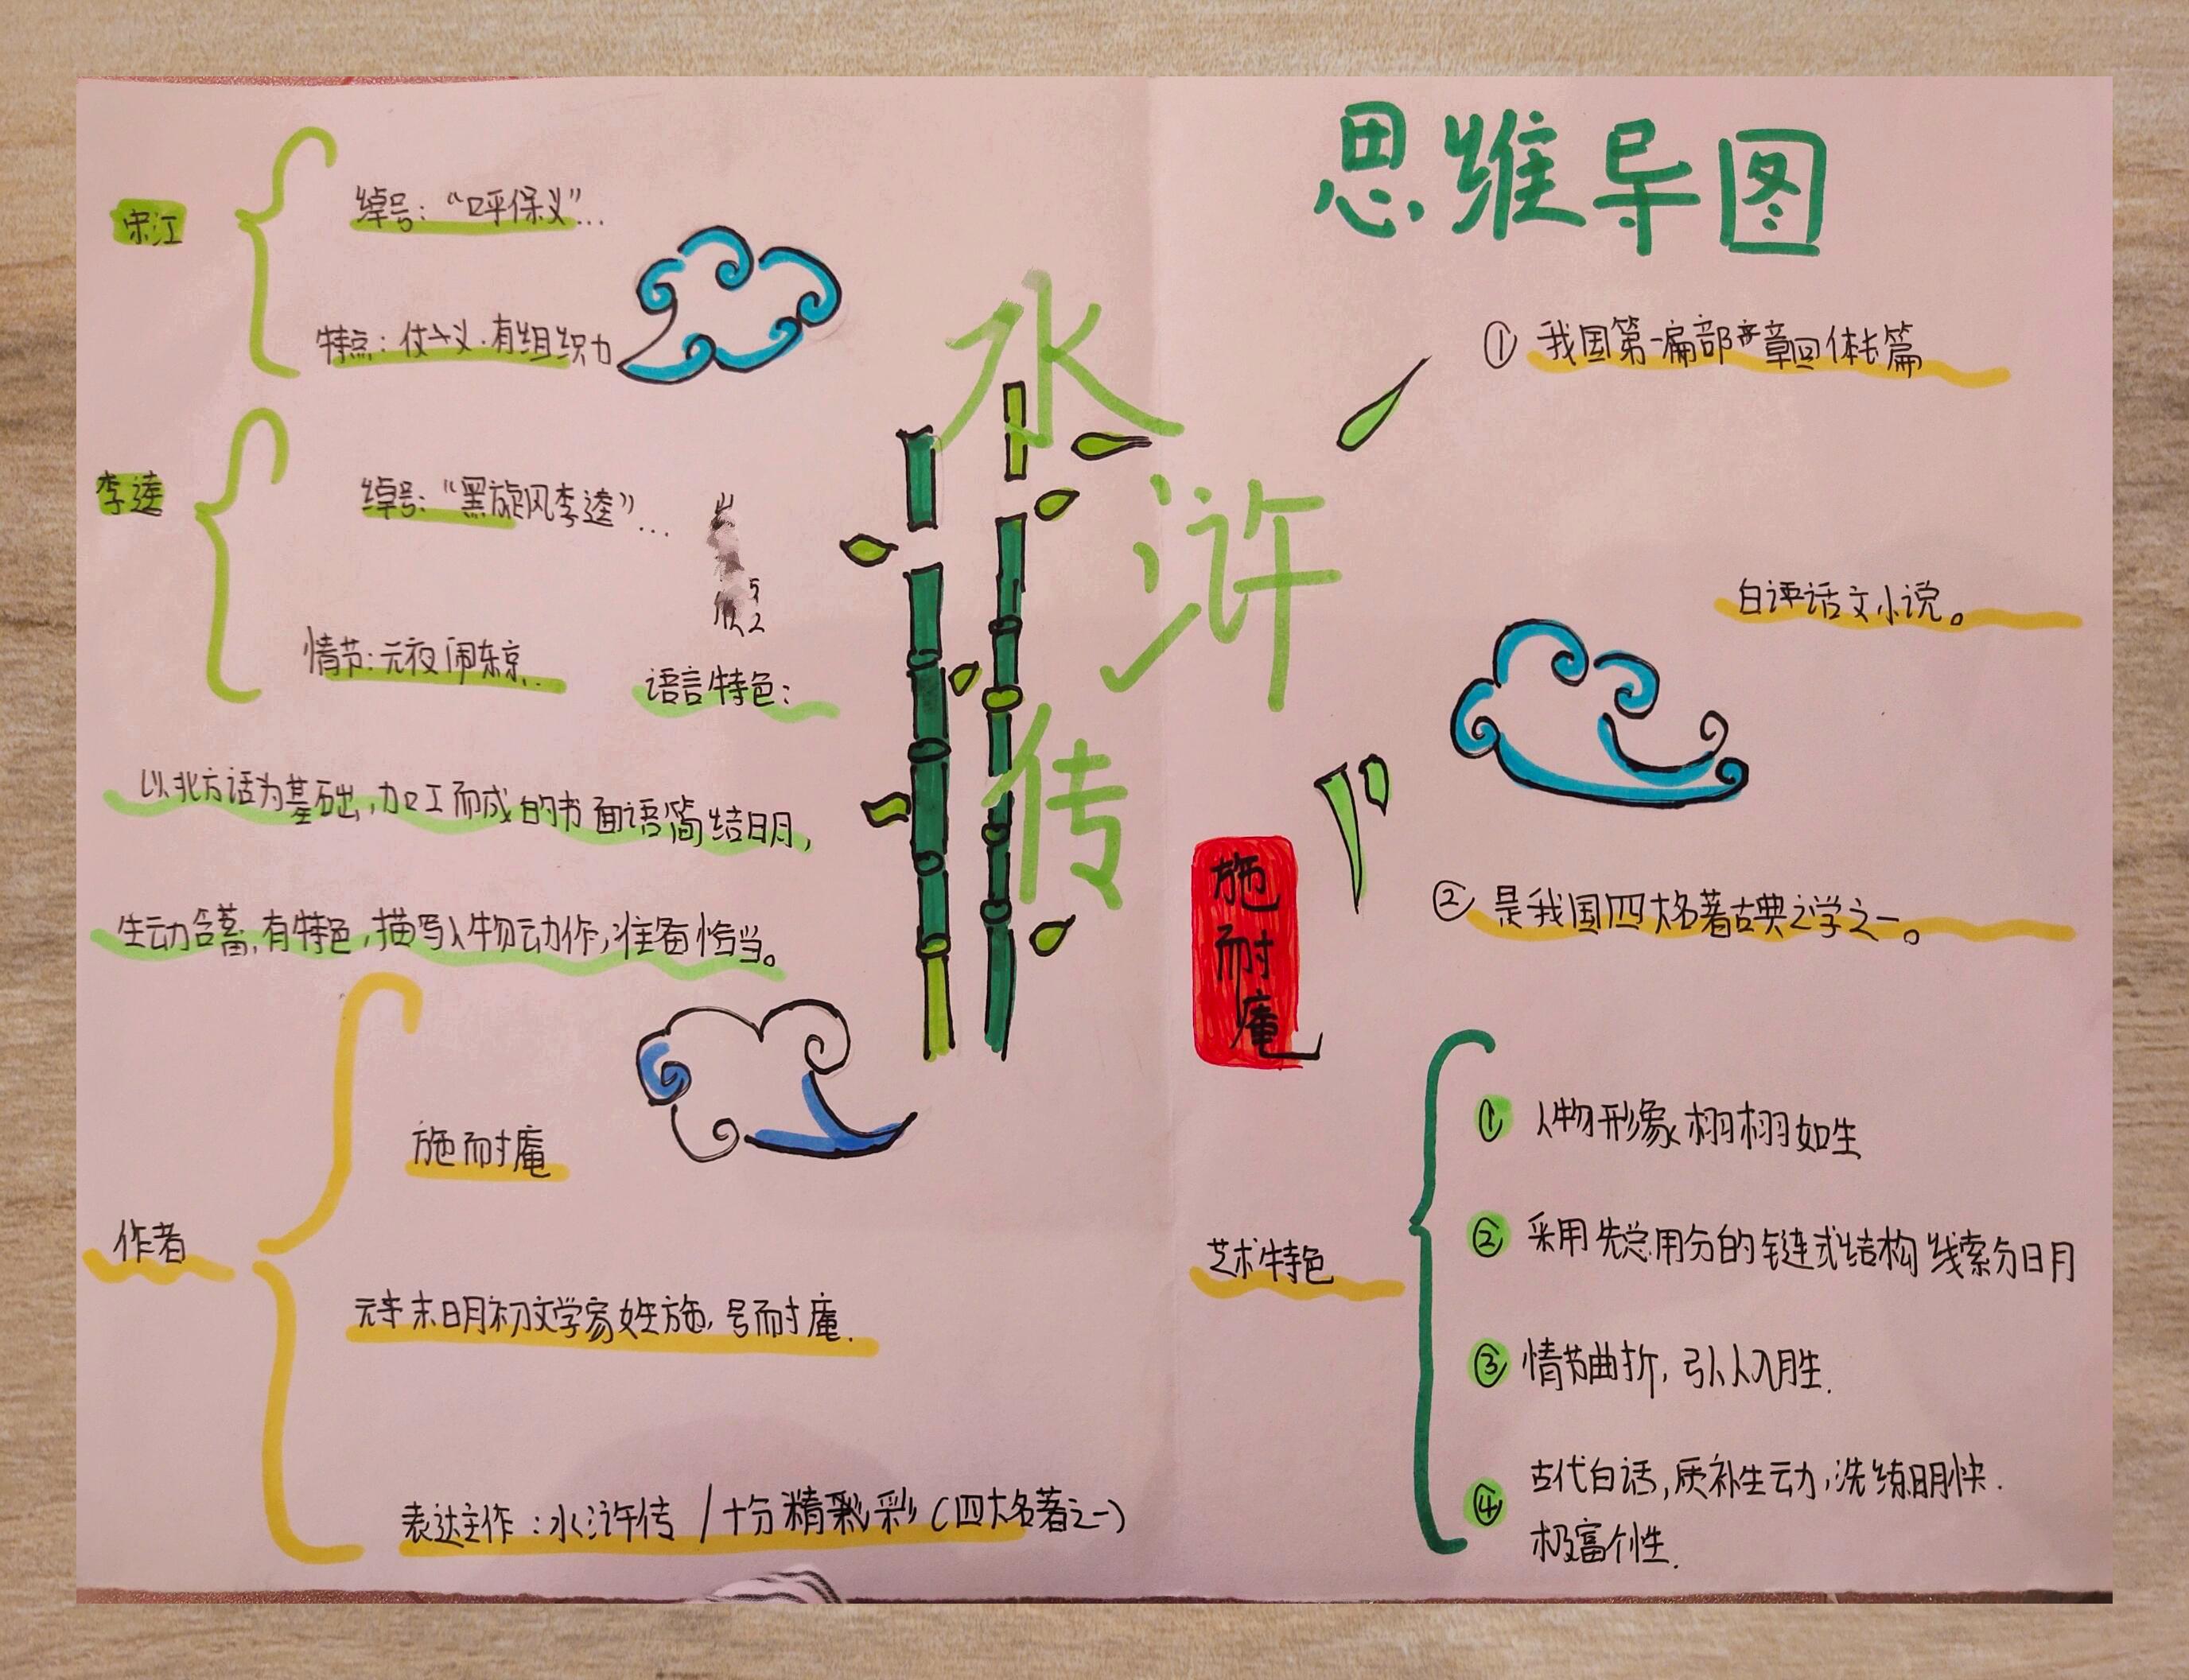 思维导图
水浒传
施耐庵
宋江
绰号:“呼保义”...
特点:仗义.有组织力
李逵
绰号:“黑旋风李逵”...
情节:元夜闹东京...
语言特色:
以北方话为基础,加工而成的书面语简结明,
生动含蓄,有特色,描写人物动作,准备恰当。
作者
施耐庵
元末明初文学家姓施,号耐庵.
表达主作:水浒传/十分精彩彩(四大名著之一)
① 我国第一扁部章回体长篇
白评话文小说。
② 是我国四大名著古典之学之一。
艺术特色
① 人物形象栩栩如生
② 采用先总用分的链式结构 线索分明
③ 情节曲折,引人入胜.
④ 古代白话,质补生动,洗练明快.
极富个性.